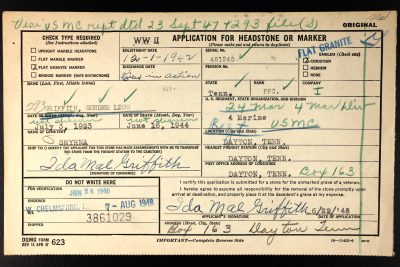 Year USMC rept dtd 23 Sept 47 + 293 file (3)
ORIGINAL
CHECK TYPE REQUIRED
(See instructions attached)
WW II
APPLICATION FOR HEADSTONE OR MARKER
(Please make out and return in duplicate)
UPRIGHT MARBLE HEADSTONE
FLAT MARBLE MARKER
FLAT GRANITE MARKER
BRONZE MARKER (NOT RESTRICTIONS)
ENLISTMENT DATE
12-1-1942
DISCHARGE DATE
SERIAL No.
481245
PENSION No.
EMBLEM (Check one)
CHRISTIAN
HEBREW
NONE
FLAT GRANITE
STATE
Tenn.
RANK
PFC.
COMPANY
I
NAME (Last, First, Middle Initial)
GRIFFITH, GORDEN LEON
U.S. REGIMENT, STATE ORGANIZATION, AND DIVISION
24 Mar 4 Mar Div
4 Marine
USMC
DATE OF BIRTH (Month, Day, Year)
1923
DATE OF DEATH (Month, Day, Year)
June 16, 1944
NAME OF CEMETERY
SMYRNA
LOCATION (City and State)
DAYTON, TENN.
NEAREST FREIGHT STATION (City and State)
DAYTON, TENN.
POST OFFICE ADDRESS OF CONSIGNEE
DAYTON, TENN. Box 163
Ida Mal Griffith
(SIGNATURE OF CONSIGNEE)
DO NOT WRITE HERE
W. CHELMSFORD,
7-AUG 1948
3861029
I certify this application is submitted for a stone for the unmarked grave of a veteran.
I hereby agree to assume all responsibility for the removal of the stone promptly upon arrival at destination, and properly place it at the decedent's grave at my expense.
Ida Mal Griffith
APPLICANT'S SIGNATURE
DATE OF APPLICATION
ADDRESS (Street, City, State)
Box 163 Dayton Tenn
OQMG FORM
623
IMPORTANT—Complete Reverse Side